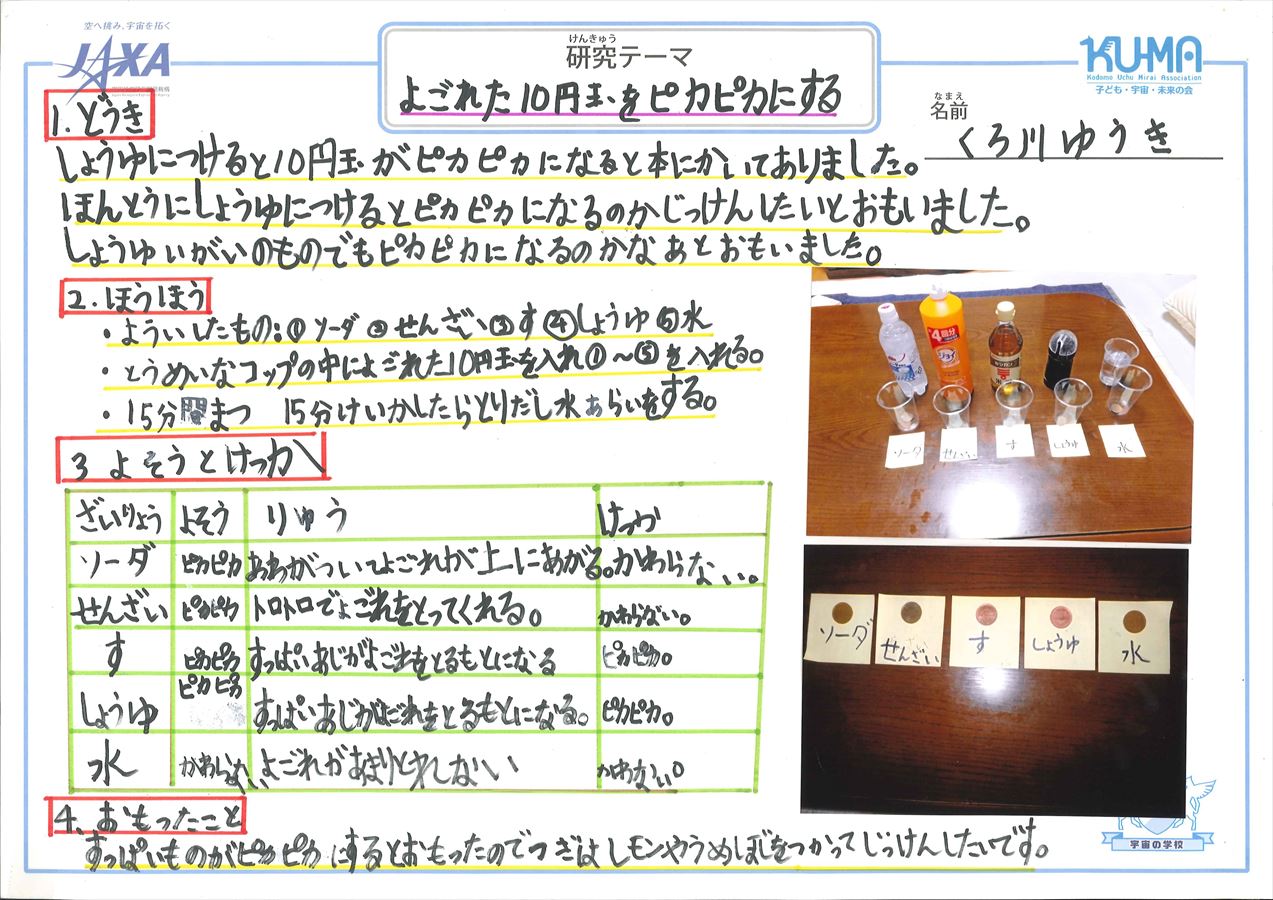 空へ挑み、宇宙を拓く
JAXA
けんきゅう
研究テーマ
よごれた10円玉をピカピカにする
KU-MA
Kodomo Uchu Mirai Association
子ども・宇宙・未来の会
なまえ
名前
くろ川ゆうき
1.どうき
しょうゆにつけると10円玉がピカピカになると本にかいてありました。
ほんとうにしょうゆにつけるとピカピカになるのかじっけんしたいとおもいました。
しょうゆいがいのものでもピカピカになるのかなあとおもいました。
2.ほうほう
・よういしたもの:①ソーダ②せんざい③す④しょうゆ⑤水
・とうめいなコップの中によごれた10円玉を入れ①~⑤を入れる。
・15分間まつ 15分けいかしたらとりだし水あらいをする。
ソーダ せんざい す しょうゆ 水
3 よそうとけっか
ざいりょう よそう りゆう けっか
ソーダ ピカピカ あわがついてよごれが上にあがる。 かわらない。
せんざい ピカピカ トロトロでよごれをとってくれる。 かわらない。
す ピカピカ すっぱいあじがよごれをとるもとになる ピカピカ。
しょうゆ ピカピカ すっぱいあじがよごれをとるもとになる。 ピカピカ。
水 かわらない よごれがあまりとれない かわない。
ソーダ せんざい す しょうゆ 水
4.おもったこと
すっぱいものがピカピカにするとおもったのでつぎはレモンやうめぼしをつかってじっけんしたいです。
宇宙の学校